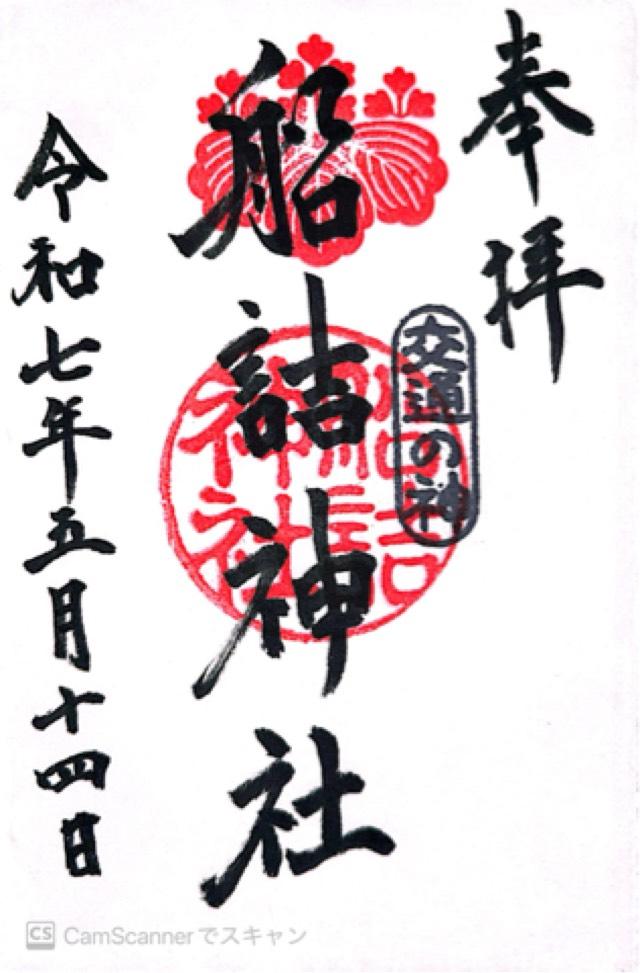 奉拝
交通の神
船詰神社
船詰神社
令和七年五月十四日
CS CamScannerでスキャン